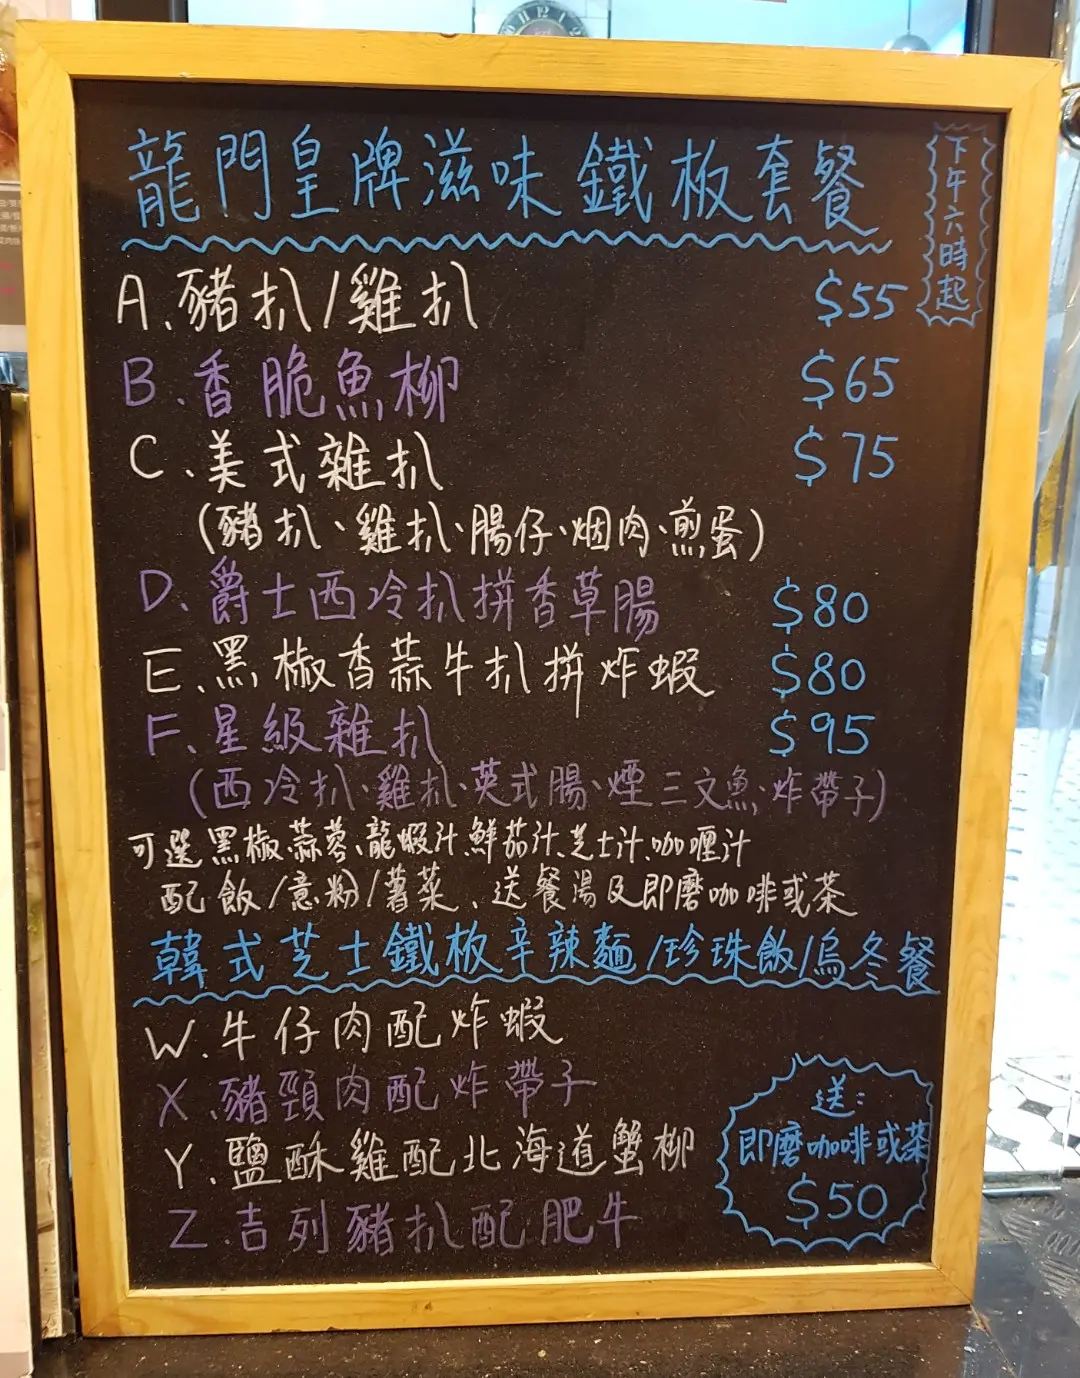 龍門皇牌滋味鐵板套餐
下午六時起
A.豬扒/雞扒 $55
B.香脆魚柳 $65
C.美式雜扒 $75
(豬扒、雞扒、腸仔、烟肉、煎蛋)
D.爵士西冷扒拼香草腸 $80
E.黑椒香蒜牛扒拼炸蝦 $80
F.星級雜扒 $95
(西冷扒、雞扒、英式腸、煙三文魚、炸帶子)
可選黑椒、蒜蓉、龍蝦汁、鮮茄汁、芝士汁、咖喱汁
配飯/意粉/薯菜、送餐湯及即磨咖啡或茶
韓式芝士鐵板辛辣麵/珍珠飯/烏冬餐
W.牛仔肉配炸蝦
X.豬頸肉配炸帶子
Y.鹽酥雞配北海道蟹柳
Z.吉列豬扒配肥牛
送:
即磨咖啡或茶
$50